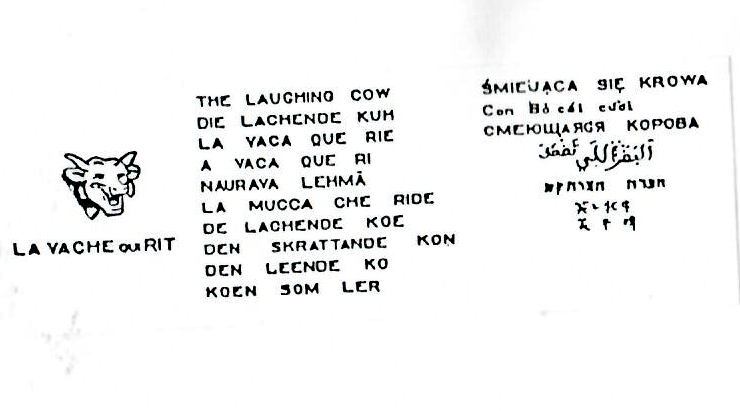 LA VACHE QUI RIT
THE LAUGHING COW
DIE LACHENDE KUH
LA VACA QUE RIE
A VACA QUE RI
NAURAVA LEHMÄ
LA MUCCA CHE RIDE
DE LACHENDE KOE
DEN SKRATTANDE KON
DEN LEENDE KO
KOEN SOM LER
ŚMIEJĄCA SIĘ KROWA
Con Bò cái cười
СМЕЮЩАЯСЯ КОРОВА